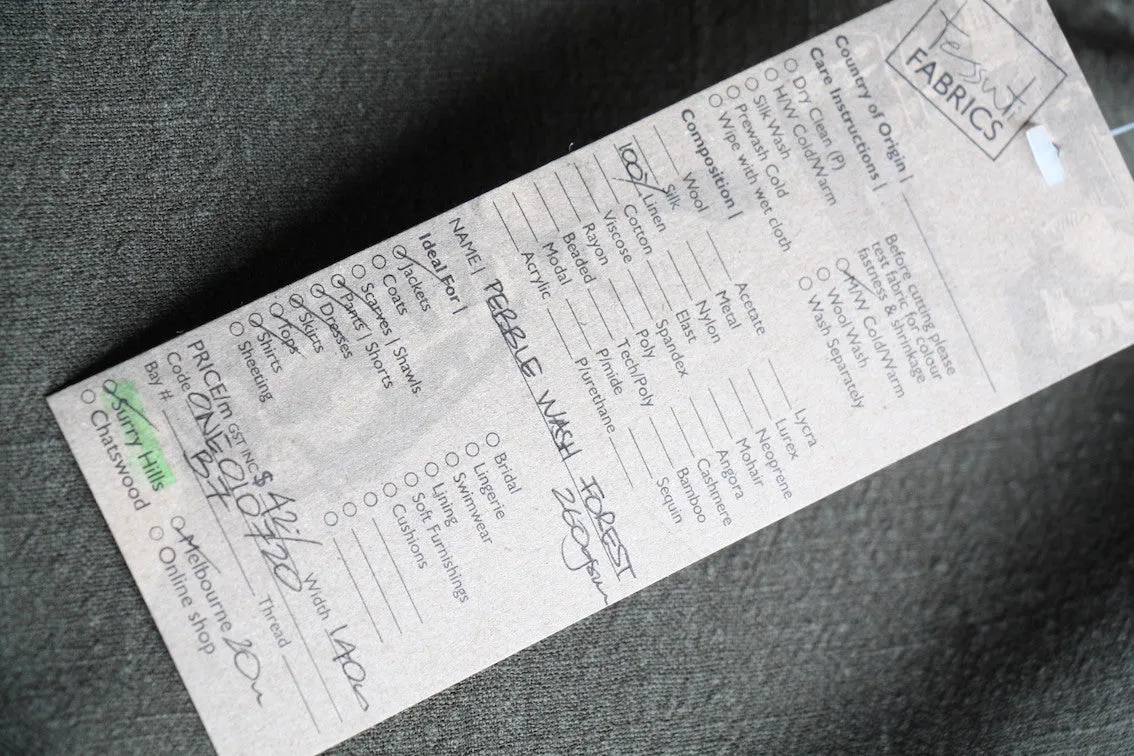 Tessuti
FABRICS
Country of Origin |
Care Instructions |
Dry Clean (P)
H/W Cold/Warm
Silk Wash
Prewash Cold
Wipe with wet cloth
Before cutting please
test fabric for colour
fastness & shrinkage
M/W Cold/Warm
Wool Wash
Wash Separately
Composition |
Wool
Silk
100% Linen
Cotton
Viscose
Rayon
Beaded
Modal
Acrylic
Acetate
Metal
Nylon
Elast
Spandex
Poly
Tech/Poly
P/mide
P/urethane
Lycra
Lurex
Neoprene
Mohair
Angora
Cashmere
Bamboo
Sequin
NAME | PEBBLE WASH FOREST
260gsm
Ideal For |
Jackets
Coats
Scarves | Shawls
Pants | Shorts
Dresses
Skirts
Tops
Shirts
Sheeting
Bridal
Lingerie
Swimwear
Lining
Soft Furnishings
Cushions
PRICE/m GST INC $ 42 Width 140
Code ONE010720
Bay # B7 Thread
Surry Hills
Chatswood
Melbourne 20m
Online shop